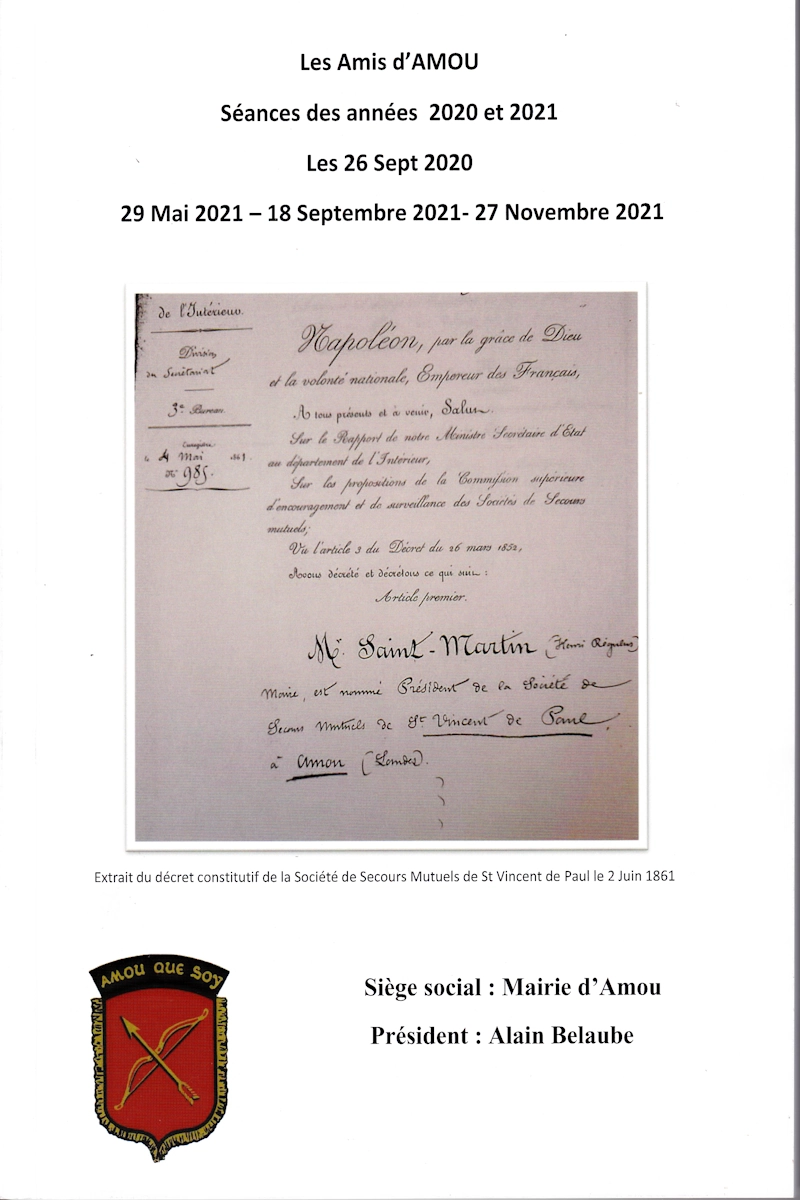 Les Amis d'AMOU
Séances des années 2020 et 2021
Les 26 Sept 2020
29 Mai 2021 – 18 Septembre 2021- 27 Novembre 2021
de l'Intérieur.
Division
du Secrétariat
3e Bureau.
Enregistré
le 4 Mai 1861.
No 985.
Napoléon, par la grâce de Dieu
et la volonté nationale, Empereur des Français,
A tous présents et à venir, Salut.
Sur le Rapport de notre Ministre Secrétaire d'Etat
au département de l'Intérieur,
Sur les propositions de la Commission supérieure
d'encouragement et de surveillance des Sociétés de Secours
mutuels;
Vu l'article 3 du Décret du 26 mars 1852,
Avons décrété et décrétons ce qui suit :
Article premier.
Mr. Saint-Martin (Henri Régulus)
Maire, est nommé Président de la Société de
Secours Mutuels de St Vincent de Paul,
à Amou (Landes).
Extrait du décret constitutif de la Société de Secours Mutuels de St Vincent de Paul le 2 Juin 1861
AMOU QUE SOY
Siège social : Mairie d'Amou
Président : Alain Belaube